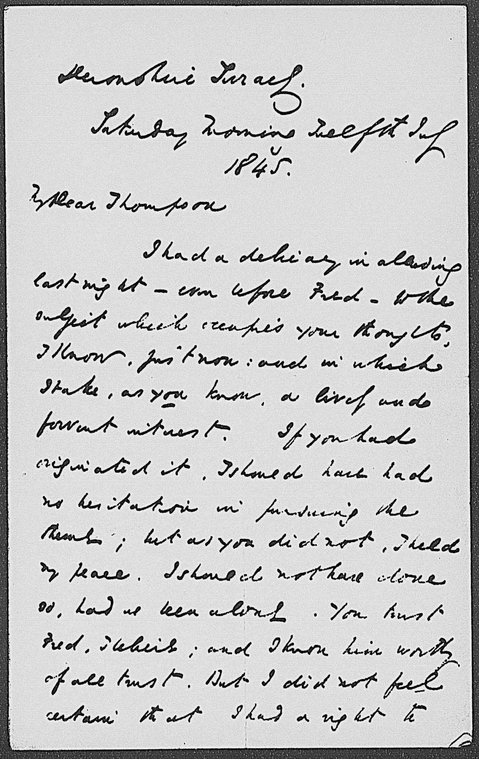 Devonshire Terrace.
Saturday Morning Twelfth July
1845.
My Dear Thompson
I had a delicacy in alluding
last night – even before Fred – to the
subject which occupies your thoughts,
I know, just now: and in which
I take, as you know, a lively and
fervent interest. If you had
originated it, I should have had
no hesitation in pursuing the
theme; but as you did not, I held
my peace. I should not have done
so, had we been alone. You trust
Fred, I believe; and I know him worthy
of all trust. But I did not feel
certain that I had a right to